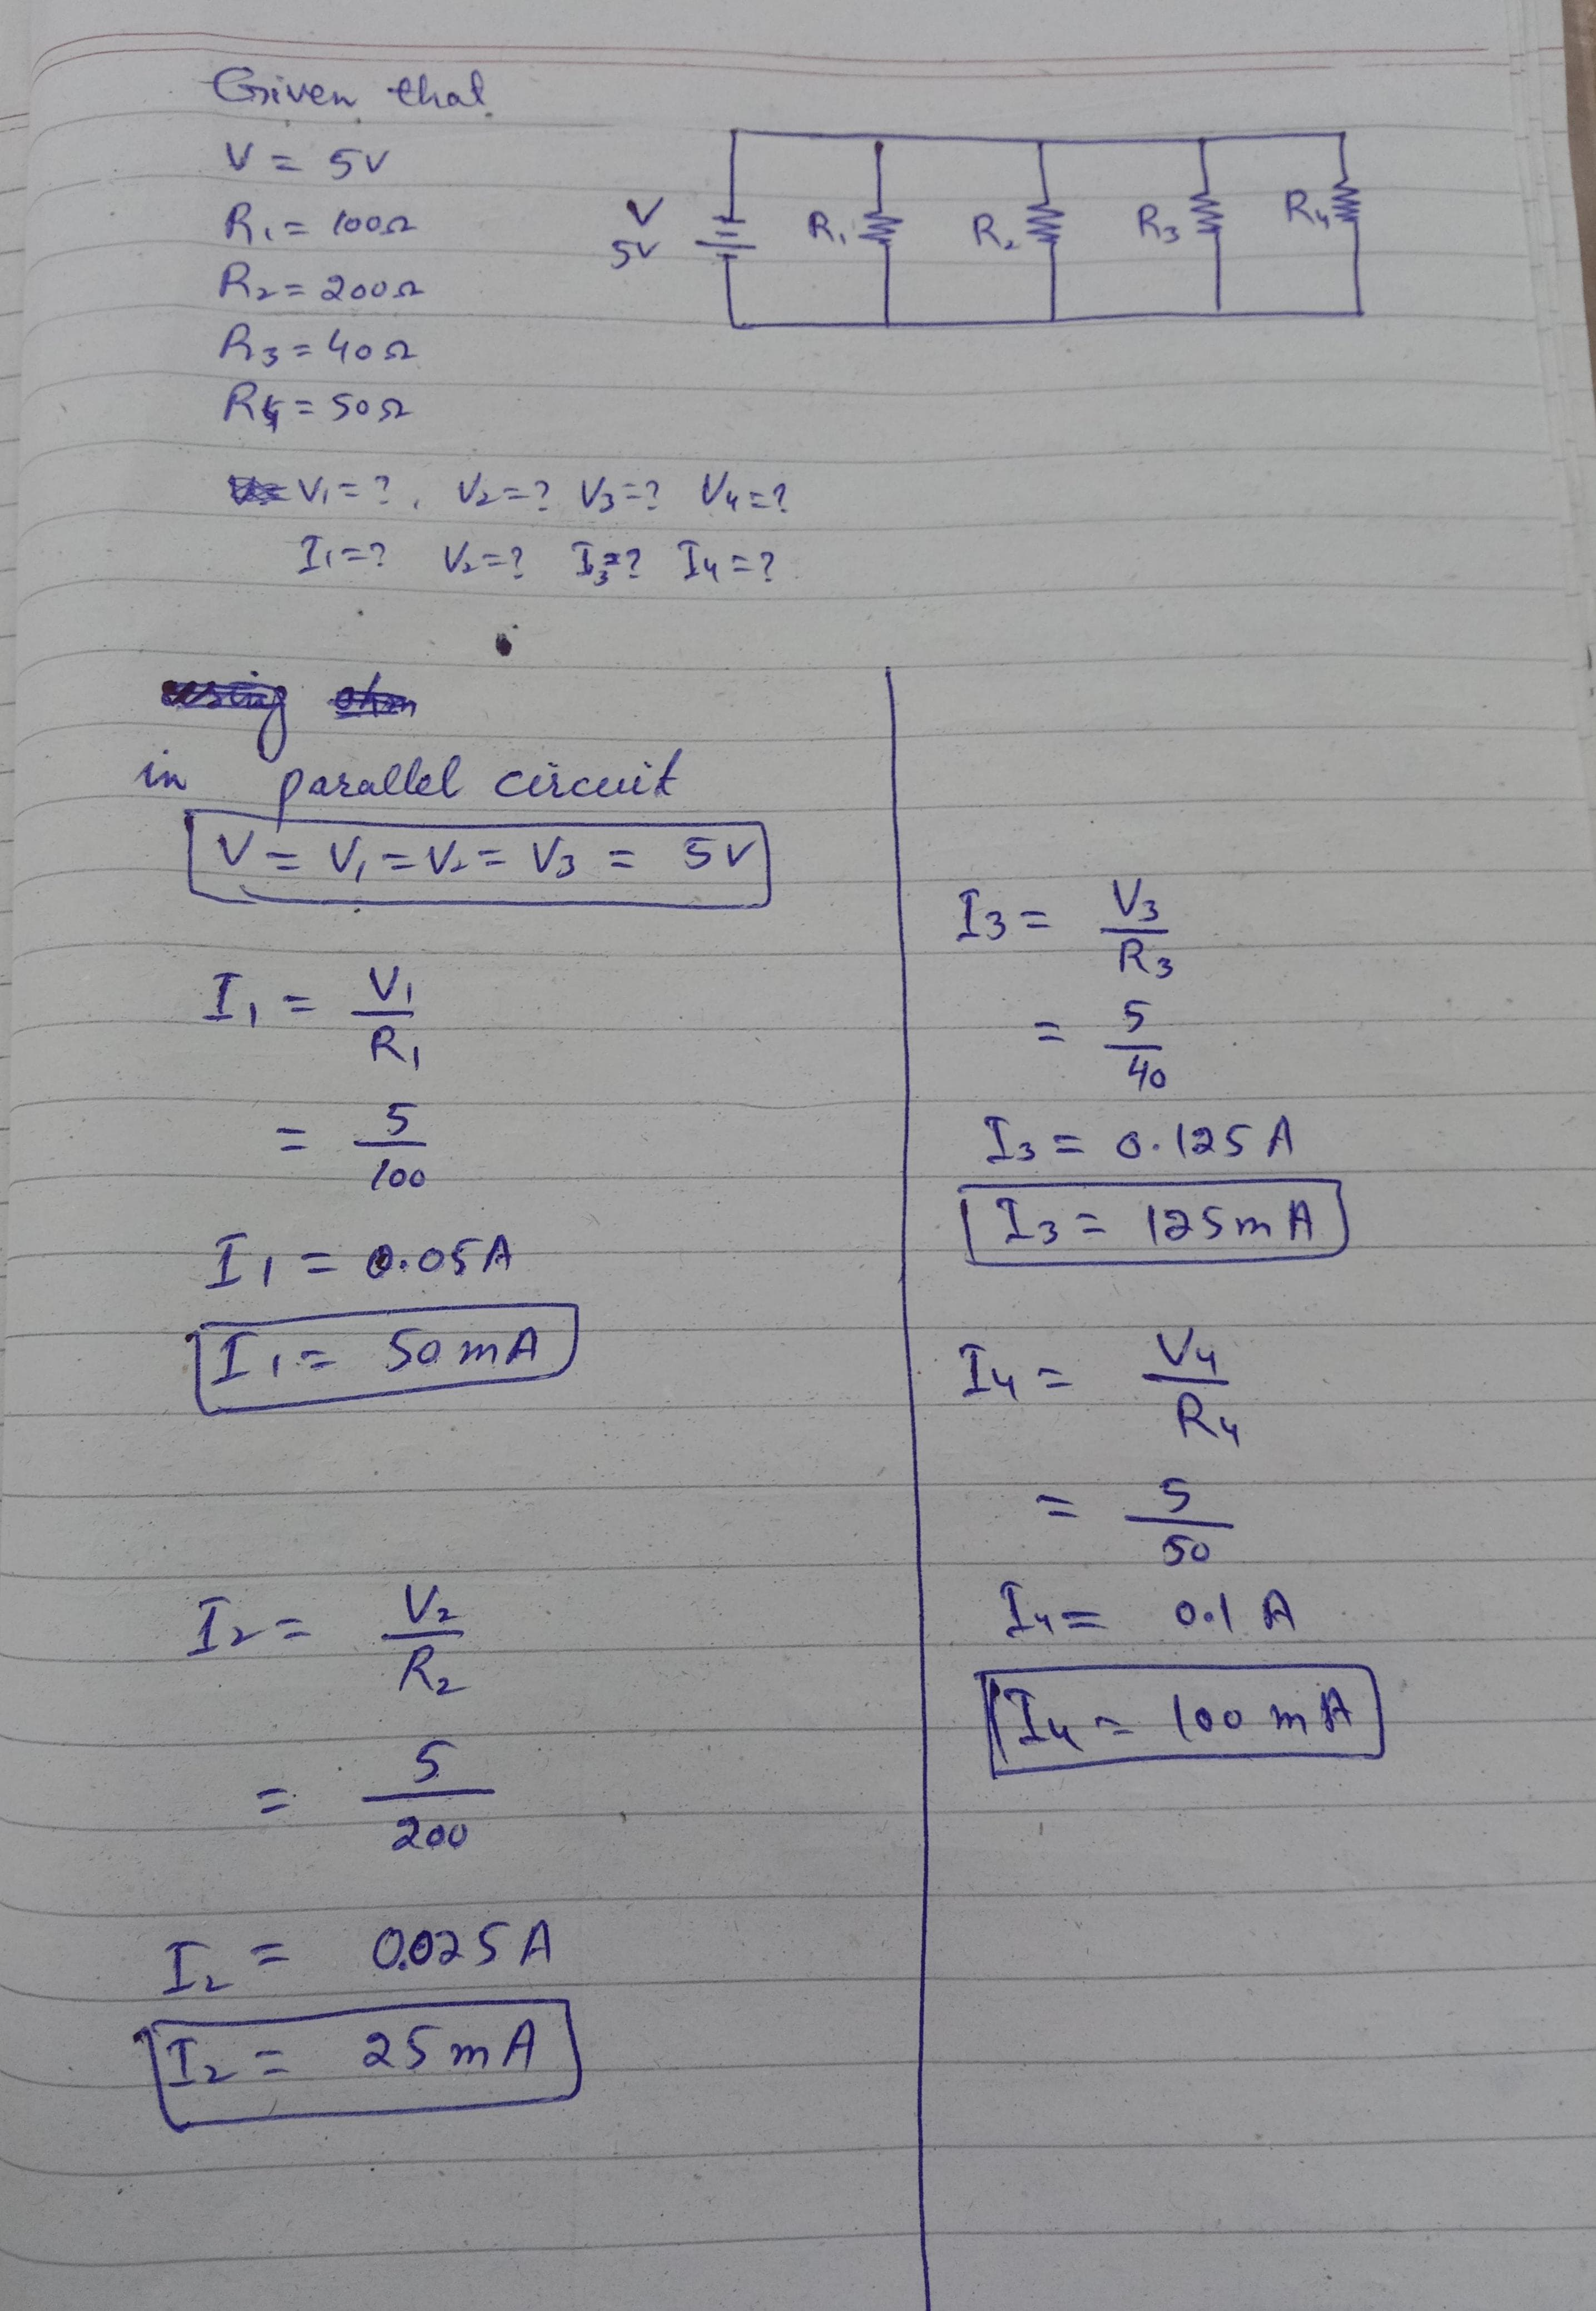 Given that
V = 5V
R₁ = 100Ω
R₂ = 200Ω
R₃ = 40Ω
R₄ = 50Ω
V
5V
R₁
R₂
R₃
R₄
V₁ = ?, V₂ = ? V₃ = ? V₄ = ?
I₁ = ? V₂ = ? I₃ = ? I₄ = ?
using ohm
in parallel circuit
V = V₁ = V₂ = V₃ = 5V
I₁ = V₁
R₁
= 5
100
I₁ = 0.05A
I₁ = 50mA
I₂ = V₂
R₂
= 5
200
I₂ = 0.025A
I₂ = 25mA
I₃ = V₃
R₃
= 5
40
I₃ = 0.125A
I₃ = 125mA
I₄ = V₄
R₄
= 5
50
I₄ = 0.1A
I₄ = 100mA